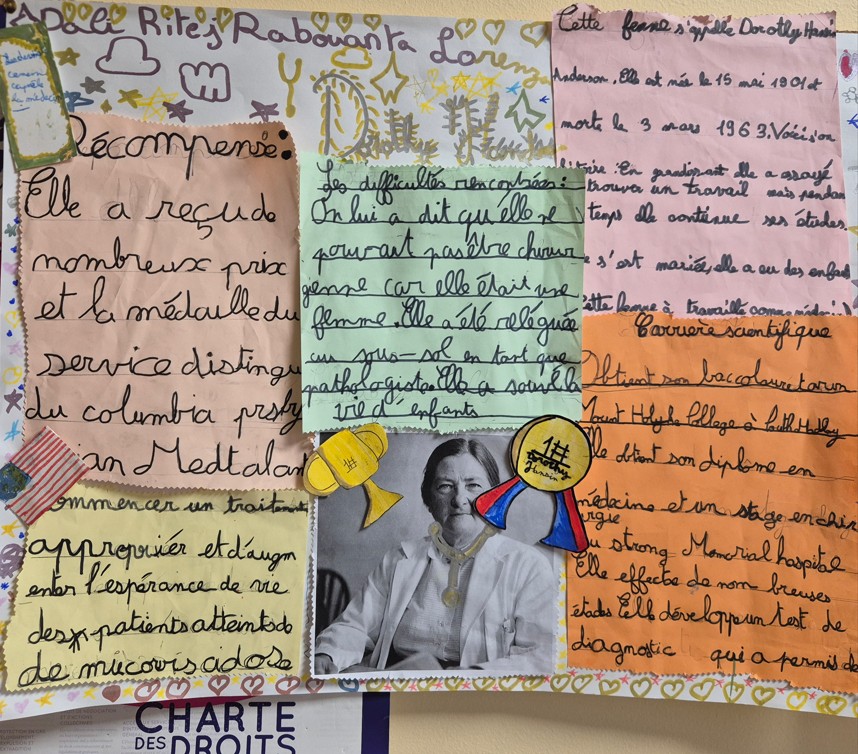 Adali Rites Rabouanta Lorenzo
Récompense:
Elle a reçu de
nombreux prix
et la médaille du
service distingu
du columbia prsby
ian Medtalan
Les difficultés rencontrées:
On lui a dit qu'elle ne
pouvait pas être chirur
gienne car elle était une
femme. Elle a été reléguée
au sous-sol en tant que
pathologiste. Elle a sauvé la
vie d'enfants
Cette femme s'appelle Dorothy Hansin
Anderson. Elle est née le 15 mai 1901 et
morte le 3 mars 1963. Voici son
histoire: En grandissant elle a essayé
trouver un travail mais pendan
temps elle continue ses études
s'est mariée, elle a eu des enfan
Cette femme à travaillé comme médecin
Carriere scientifique
Obtient son baccalauretarun
Mount Holyoke College à South Hadley
Elle obtient son diplome en
médecine et un stage en chir
rgie
au strong Memorial hospital
Elle effectue de nombreuses
études Elle développe un test de
diagnostic qui a permis de
commencer un traitement
approprier et d'augm
enter l'espérance de vie
des patients atteints de
de mucoviscidose
1#
1#
Dorothy
Hansin
CHARTE
DES DROITS